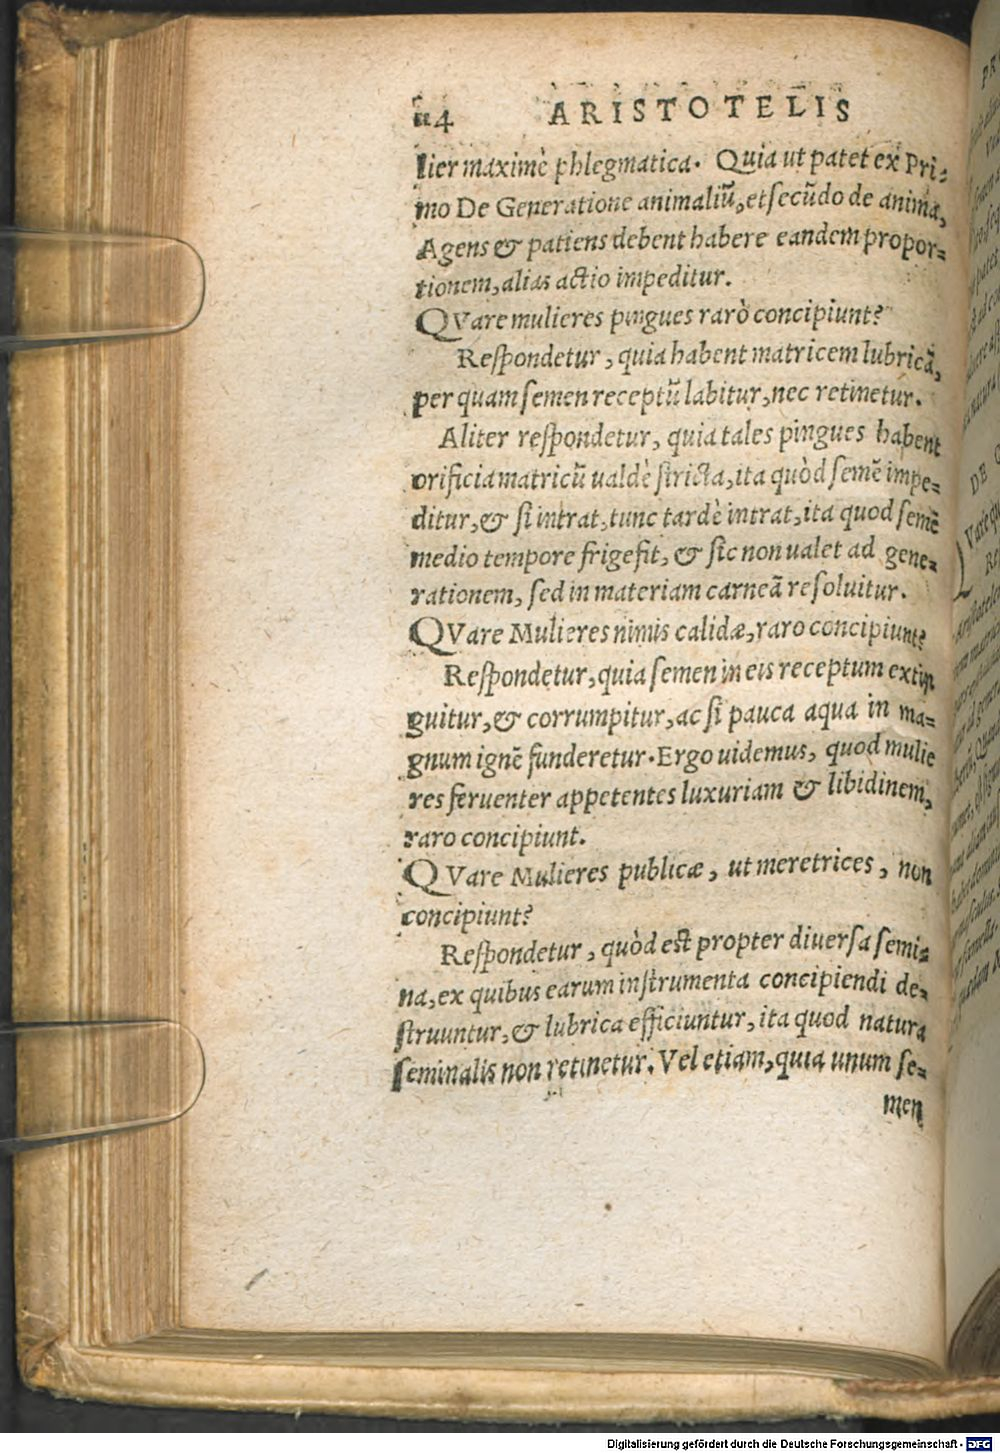 114 ARISTOTELIS
lier maximè phlegmatica. Quia ut patet ex Pri-
mo De Generatione animaliũ, et secũdo de anima,
Agens & patiens debent habere eandem propor-
tionem, alias actio impeditur.
QVare mulieres pingues rarò concipiunt?
Respondetur, quia habent matricem lubricã,
per quam semen receptũ labitur, nec retinetur.
Aliter respondetur, quia tales pingues habent
orificia matricũ ualdè stricta, ita quòd semẽ impe-
ditur, & si intrat, tunc tardè intrat, ita quod semẽ
medio tempore frigefit, & sic non ualet ad gene-
rationem, sed in materiam carneã resoluitur.
QVare Mulieres nimis calidæ, raro concipiunt?
Respondetur, quia semen in eis receptum extin
guitur, & corrumpitur, ac si pauca aqua in ma-
gnum ignẽ funderetur. Ergo uidemus, quod mulie
res feruenter appetentes luxuriam & libidinem,
raro concipiunt.
QVare Mulieres publicæ, ut meretrices, non
concipiunt?
Respondetur, quòd est propter diuersa semi-
na, ex quibus earum instrumenta concipiendi de-
struuntur, & lubrica efficiuntur, ita quod natura
seminalis non retinetur. Vel etiam, quia unum se-
men
Digitalisierung gefördert durch die Deutsche Forschungsgemeinschaft - DFG